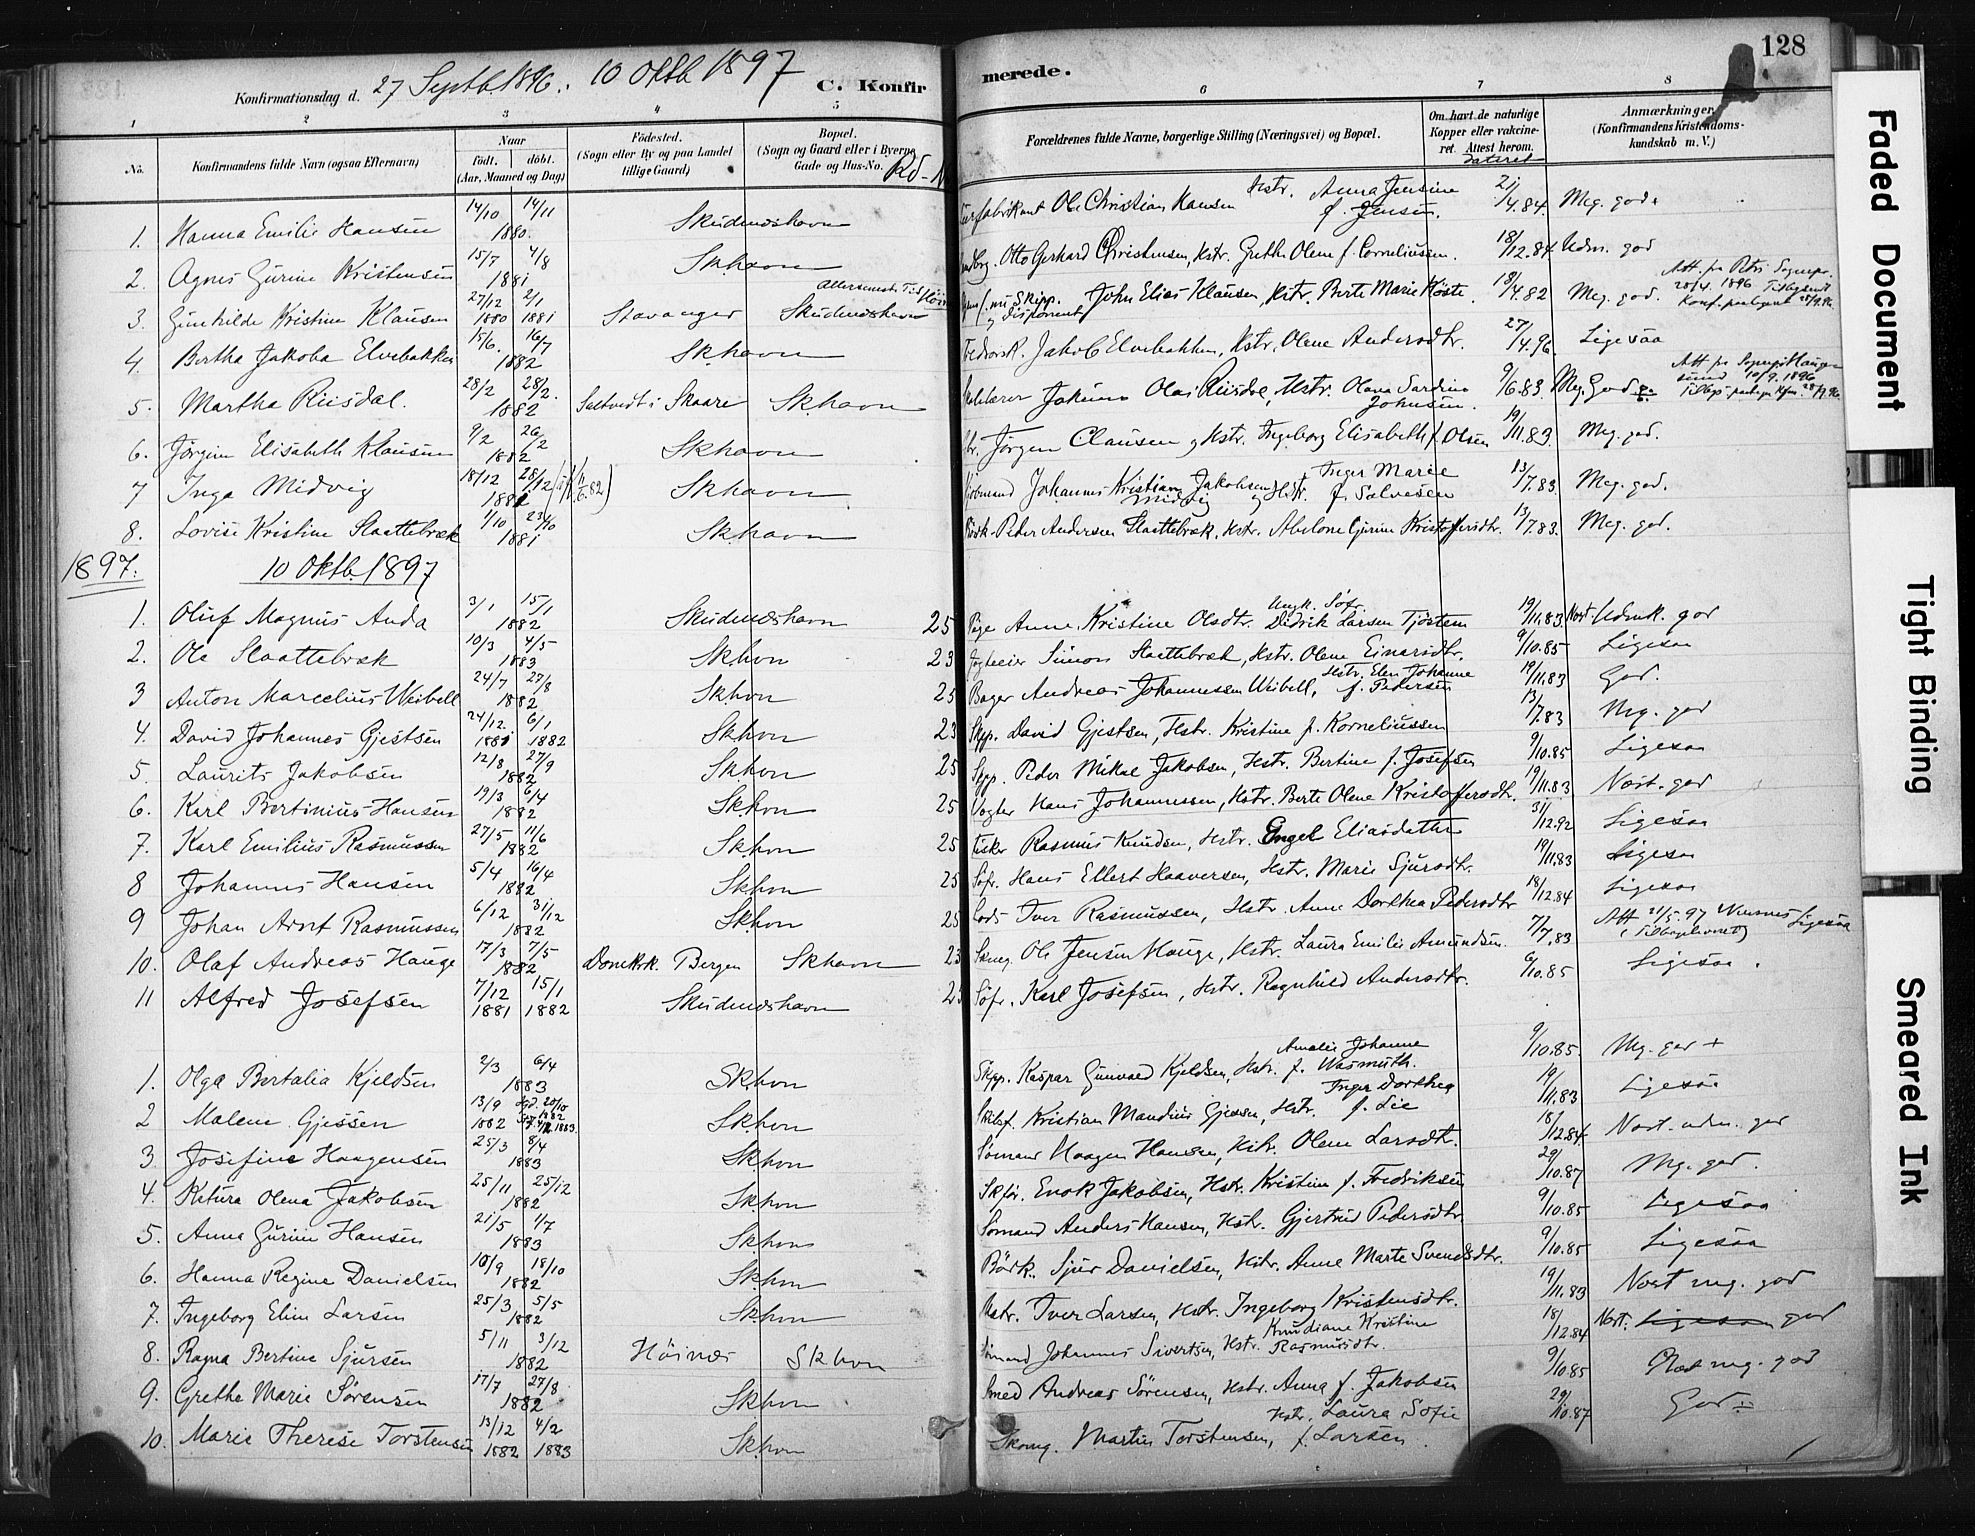 128
Konfirmationsdag d. 27 Septb 1896. 10 Oktb 1897 C. Konfirmerede.
1 2 3 4 5 6 7 8
No. Konfirmandens fulde Navn (ogsaa Efternavn) Naar født. døbt. (Aar, Maaned og Dag) Fødested. (Sogn eller By og paa Landet tillige Gaard) Bopæl. (Sogn og Gaard eller i Byerne Gade og Hus-No. Forældrenes fulde Navne, borgerlige Stilling (Næringsvei) og Bopæl. Om havt de naturlige Kopper eller vakcineret. Attest herom. dateret Anmærkninger (Konfirmandens Kristendomskundskab m. V.)
1. Hanna Emilie Hansen 14/10 14/11 1880. Skudeneshavn Ole Christian Hansen Hstr. Anna Jensine f. Jensen. 21/4.84. Meg. god.
2. Agnes Gurine Kristensen 15/7 4/8 1881 Skhavn Otto Gerhard Christensen, Hstr. Grethe Olene f. Corneliussen. 18/12.84 Udm. god
3. Gunhilde Kristine Klausen 27/12 1880 2/1 1881 Stavanger Skudeneshavn Skipp. John Elias Klausen, Hstr. Berte Marie Høste. 18/4.82 Meg. god. Att. fra Petri Sognepr. 28/4. 1896
4. Bertha Jakoba Elvebakken 15/6. 16/7 1882 Skhavn Jakob Elvebakken, Hstr. Olene Andersdtr. 27/4.96 Ligesaa
5. Martha Riisdal. 28/2 28/2. 1882 Saltveit i Skaare Skhavn Olai Riisdal, Hstr. Olava Sardine Johnsen. 9/6.83. Meg. God Att fra Sognepr Haugesund 10/9. 1896
6. Jørgine Elisabeth Klausen 9/2 26/2 1882 Skhavn Jørgen Clausen, Hstr. Ingeborg Elisabeth f. Olsen 19/11.83. Meg. god.
7 Inga Midvig 18/12 28/12 1881 Skhavn Johannes Kristian Jakobsen Midvig Hstr. Inger Marie f. Salvesen 13/7.83. Meg. god.
8. Lovise Kristine Slaattebræk 1/10 23/10 1881 Skhavn Peder Andersen Slaattebræk, Hstr. Abelone Gurine Kristoffersdtr. 13/7.83. Meg. god.
1897. 10 Oktb. 1897
1. Oluf Magnus Anda 3/1 15/1 1882 Skudeneshavn 25 Pige Anne Kristine Olsdtr. Ungk. Søfr. Didrik Larsen Tjøstem 19/11.83. Næst. Udmk. god
2. Ole Slaattebræk 10/3 4/5 1883 Skhvn 23 Simon Slaattebræk, Hstr. Olene Einarsdtr. 9/10.85 Ligesaa
3 Anton Marcelius Weibell 24/7 27/8 1882 Skhvn 25 Bager Andreas Johannessen Weibell, Hstr. Elen Johanne f. Pedersen 19/11.83 God.
4. David Johannes Gjestsen 24/12 1881 6/1 1882 Skhvn 23 Skpp. David Gjestsen, Hstr. Kristine f. Korneliussen 13/7.83 Mg. god
5. Laurits Jakobsen 12/8 27/9 1882 Skhvn 25 Skpp. Peder Mikal Jakobsen, Hstr. Bertine f. Josefsen 9/10.85 Ligesaa
6. Karl Bertinius Hansen 19/3 6/4 1882 Skhvn 25 Vogter Hans Johannessen, Hstr. Berte Olene Kristoffersdtr. 19/11.83 Næst. god
7. Karl Emilius Rasmussen 27/5 11/6 1882 Skhvn 25 Fisker Rasmus Knudsen, Hstr. Engel Eliasdatter 31/12.92 Ligesaa
8 Johannes Hansen 5/4 16/4 1882 Skhvn 25 Søfr. Hans Ellert Haaversen, Hstr. Marie Sjursdtr. 19/11.83 Ligesaa
9 Johan Arnt Rasmussen 6/12 31/12 1882 Skhvn 25 Lods Iver Rasmussen, Hstr. Anne Dorthea Pedersdtr 18/12.84 Ligesaa
10. Olaf Andreas Hauge 17/3 7/5 1882 Domkrk. Bergen Skhavn 23 Ole Jensen Hauge, Hstr. Laura Emilie Amundsen. 7/7.83 Att 21/5.97 (Tilbageleveret) Ligesaa
11 Alfred Josefsen 7/12 1881 15/1 1882 Skudeneshavn Søfr. Karl Josefsen, Hstr. Ragnhild Andersdtr. 9/10.85 Ligesaa.
1. Olga Bertalia Kjeldsen 2/3 6/4 1883 Skhvn Skpp. Kaspar Gunvald Kjeldsen, Hstr. Amalie Johanne f. Wasmuth. 9/10.85. Mg. god +
2 Malene Gjessen 13/9 1882 Skhvn Kristian Mandius Gjessen, Hstr. Inger Dorthea f. Lie 19/11.83 Ligesaa
3. Josefine Haagensen 25/3 8/4 1883 Skhvn Sømand Haagen Hansen, Hstr. Olene Larsdtr. 18/12.84. Næst. udm. god
4. Ketura Olena Jakobsen 25/11 25/12 1882 Skhvn Enok Jakobsen, Hstr. Kristine f. Fredriksen 29/10.87 Mg. god.
5. Anna Gurine Hansen 21/5 1/7 1883 Skhvn Sømand Anders Hansen, Hstr. Gjertrud Pedersdtr 9/10.85 Ligesaa
6. Hanna Regine Danielsen 10/9 18/10 1882 Skhvn Bødk. Sjur Danielsen, Hstr. Anne Marte Svendsdtr. 9/10.85 Ligesaa
7. Ingeborg Eline Larsen 25/3 5/5 1882 Skhvn Iver Larsen, Hstr. Ingeborg Kristensdtr. 19/11.83 Næst mg. god
8. Ragna Bertine Sjursen 5/11 3/12 1882 Høinæs Skhvn Sømand Johannes Sivertsen, Hstr. Knudiane Kristine Rasmusdtr. 18/12.84 Næst. Ligesaa god
9. Grethe Marie Sørensen 17/7 27/8 1882 Skhvn Smed Andreas Sørensen, Hstr. Anna f. Jakobsen 9/10.85 Næst mg. god
10. Marie Therese Torstensen 13/12 1882 4/2 1883 Skhvn Skomg. Martin Torstensen, Hstr. Laura Sofie f. Larsen. 29/10.87 God
Faded Document
Tight Binding
Smeared Ink